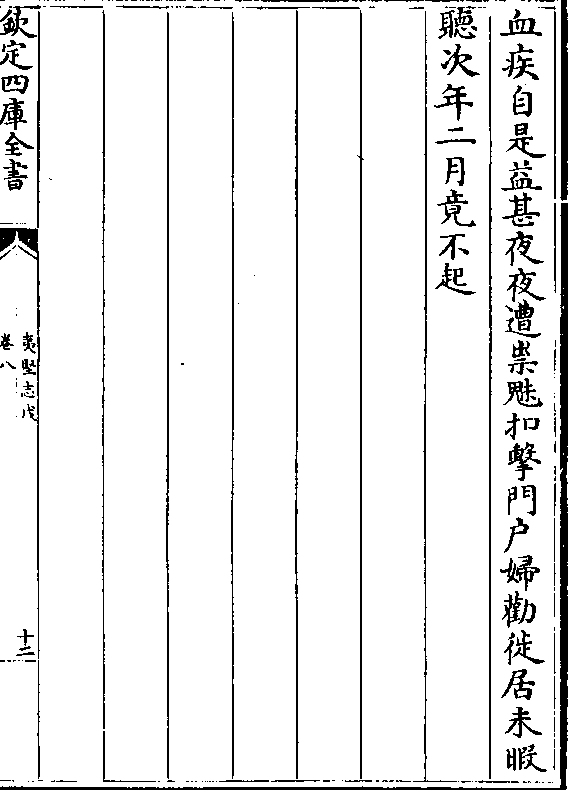 血疾自是益甚夜夜遭祟魅扣擊門户婦勸徙居未暇
聽次年二月竟不起
欽定四庫全書
夷堅志戊
卷八
十二